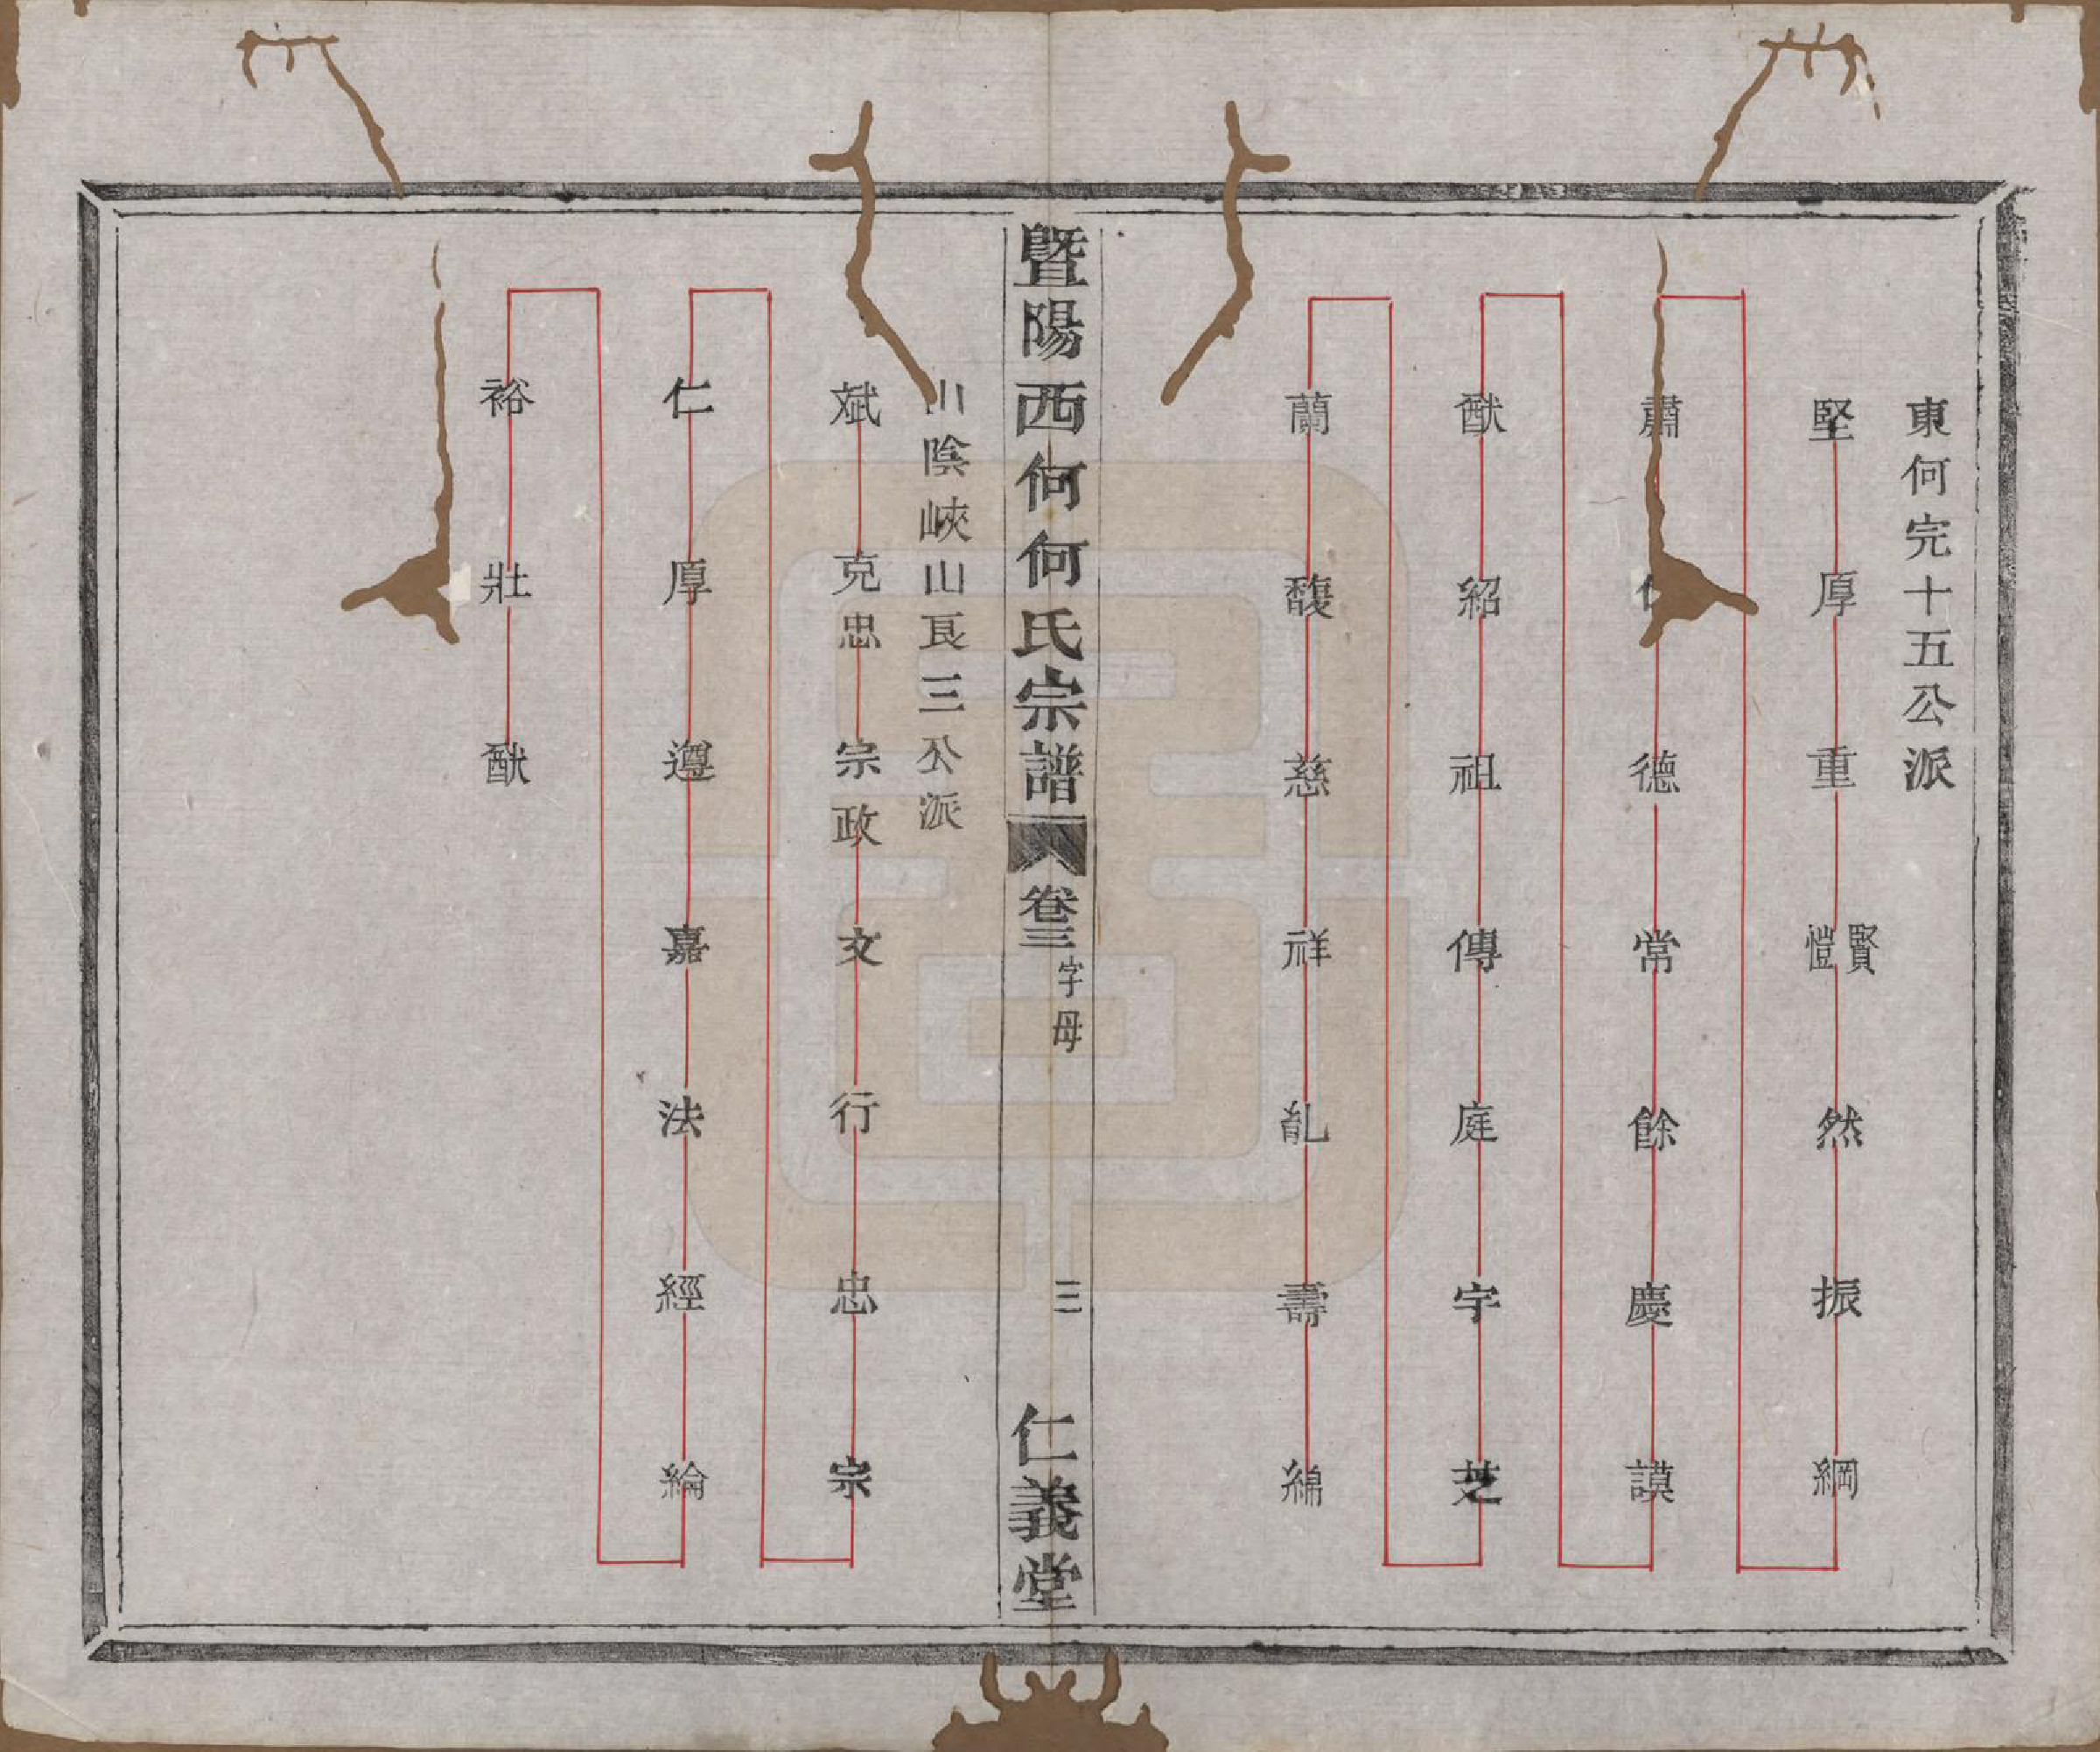 東何完十五公派
堅厚重賢愷然振綱
肅德常餘慶謨
猷紹祖傳庭宇芝
蘭馥慈祥胤壽綿
暨陽西何何氏宗譜 卷三 字母 三 仁義堂
山陰峽山良三公派
斌克忠宗政文行忠宗
仁厚遵嘉法經綸
裕壯猷